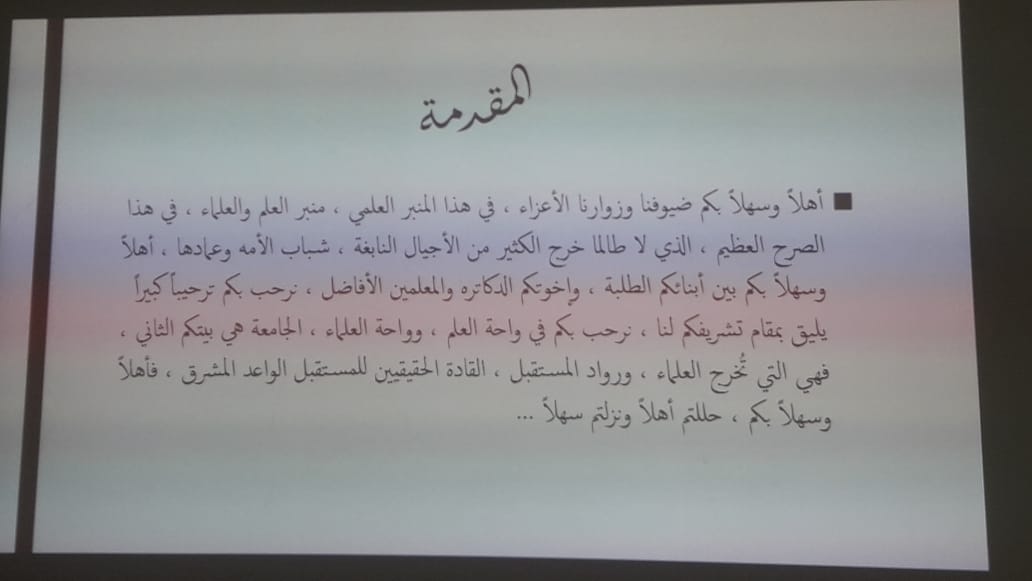 المقدمة
■ أهلاً وسهلاً بكم ضيوفنا وزوارنا الأعزاء ، في هذا المنبر العلمي ، منبر العلم والعلماء ، في هذا
الصرح العظيم ، الذي لا طالما خرج الكثير من الأجيال النابغة ، شباب الأمه وعمادها ، أهلاً
وسهلاً بكم بين أبنائكم الطلبة ، وإخوتكم الدكاتره والمعلمين الأفاضل ، نرحب بكم ترحيباً كبيراً
يليق بمقام تشريفكم لنا ، نرحب بكم في واحة العلم ، وواحة العلماء ، الجامعة هي بيتكم الثاني ،
فهي التي تُخرج العلماء ، ورواد المستقبل ، القادة الحقيقيين للمستقبل الواعد المشرق ، فأهلاً
وسهلاً بكم ، حللتم أهلاً ونزلتم سهلاً ...